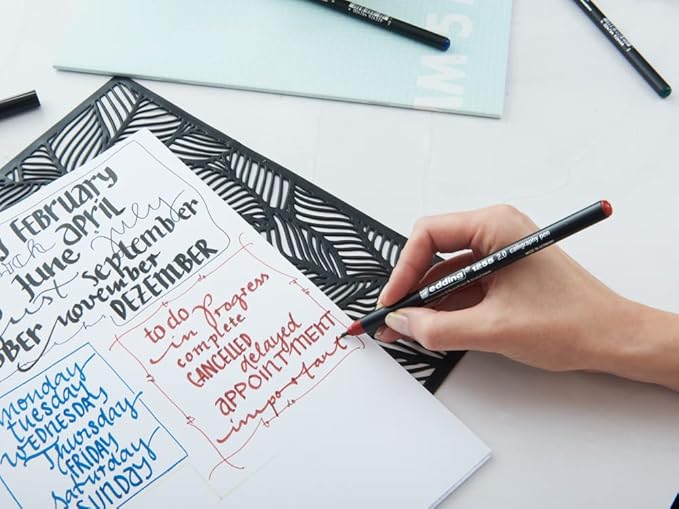 February
July
June April
September
november
DEZEMBER
to do
in progress
complete
CANCELLED delayed
APPOINTMENT
important
Monday
Tuesday
WEDNESDAY
Thursday
FRIDAY
Saturday
SUNDAY
edding 1255 2.0 calligraphy pen